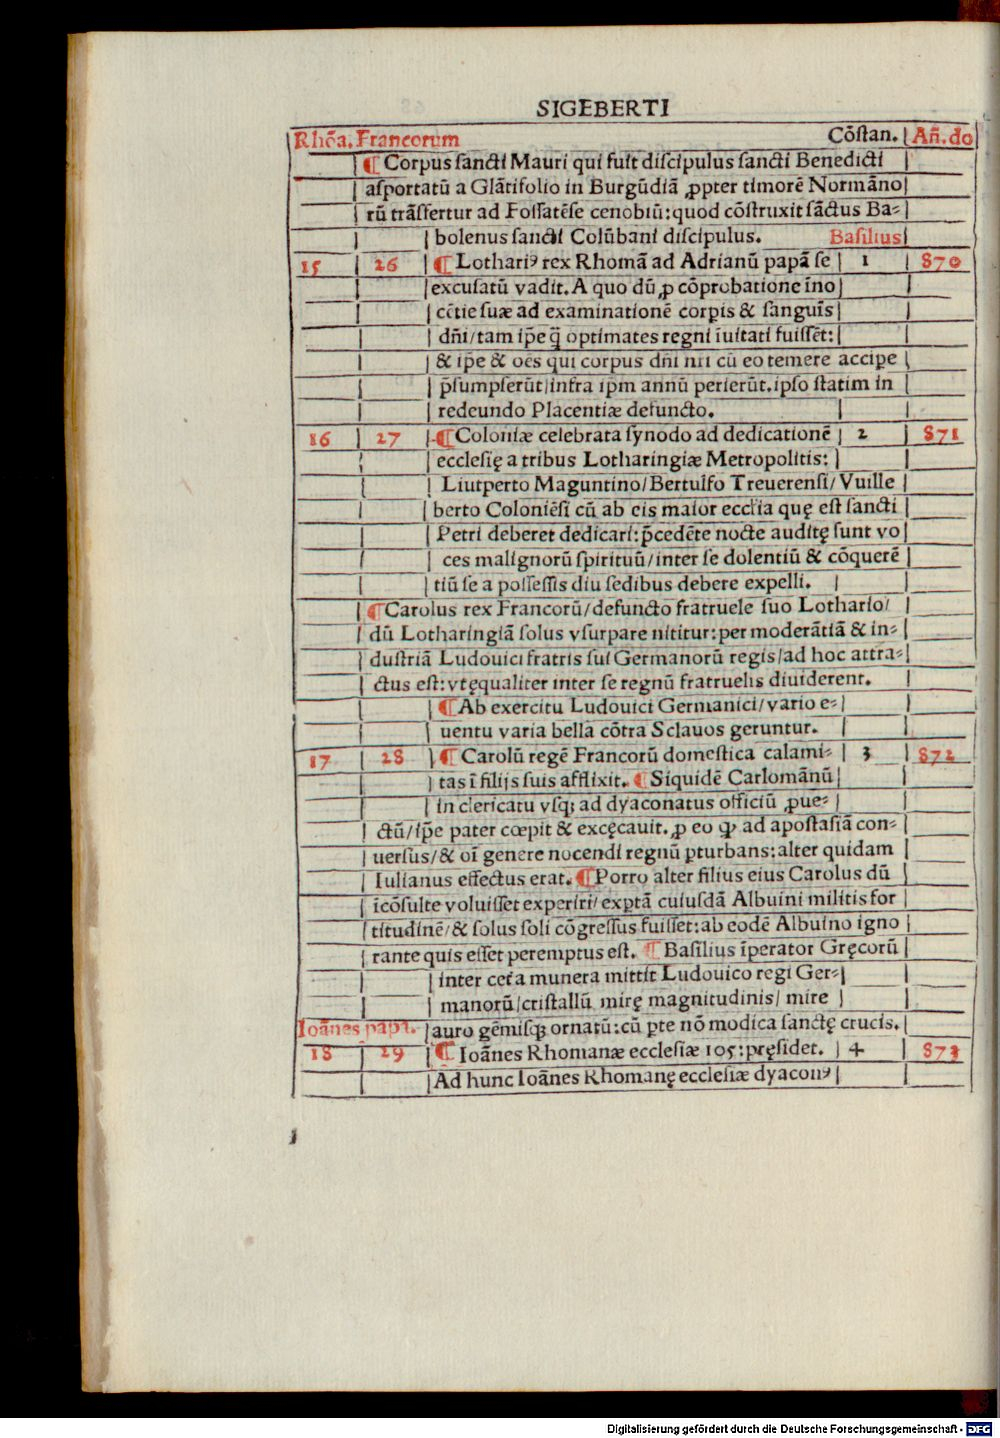 SIGEBERTI
Rhōa. Francorum Cōſtan. An̄. do
¶ Corpus ſancti Mauri qui fuit diſcipulus ſancti Benedicti
aſportatū a Glātifolio in Burgūdiā ꝓpter timorē Normāno
rū trāſfertur ad Foſſatēſe cenobiū: quod cōſtruxit ſāctus Ba-
bolenus ſancti Colūbani diſcipulus. Baſilius
15 26 ¶ Lothariꝰ rex Rhomā ad Adrianū papā ſe 1 870
excuſatū vadit. A quo dū ꝓ cōprobatione īno
cētie ſuæ ad examinationē corpis & ſanguīs
dn̄i/tam ip̄e q̄̄ optimates regni īuitati fuiſſēt:
& ip̄e & oēs qui corpus dn̄i nr̄i cū eo temere accipe
p̄ſumpſerūt/infra ip̄m annū perierūt. ipſo ſtatim in
redeundo Placentiæ defuncto.
16 27 ¶ Coloniæ celebrata ſynodo ad dedicationē 2 871
eccleſię a tribus Lotharingiæ Metropolitis:
Liutperto Maguntino/Bertulfo Treuerenſi/Vuille
berto Coloniēſi cū ab eis maior eccl̄ia quę eſt ſancti
Petri deberet dedicari: p̄cedēte nocte auditę ſunt vo
ces malignorū ſpirituū/inter ſe dolentiū & cōquerē
tiū ſe a poſſeſſis diu ſedibus debere expelli.
¶ Carolus rex Francorū/defuncto fratruele ſuo Lothario/
dū Lotharingiā ſolus vſurpare nititur: per moderātiā & in-
duſtriā Ludouici fratris ſui Germanorū regis/ad hoc attra-
ctus eſt: vt ęqualiter inter ſe regnū fratruelis diuiderent.
¶ Ab exercitu Ludouici Germanici/vario e-
uentu varia bella cōtra Sclauos geruntur.
17 28 ¶ Carolū regē Francorū domeſtica calami- 3 872
tas ī filijs ſuis afflixit. ¶ Siquidē Carlomānū
in clericatu vſqꝫ ad dyaconatus officiū ꝓue-
ctū/ip̄e pater cœpit & excęcauit. ꝓ eo ꝙ ad apoſtaſiā con-
uerſus/& oī genere nocendi regnū ꝑturbans: alter quidam
Iulianus effectus erat. ¶ Porro alter filius eius Carolus dū
īcōſulte voluiſſet experiri/exptā cuiuſdā Albuini militis for
titudinē/& ſolus ſoli cōgreſſus fuiſſet: ab eodē Albuino igno
rante quis eſſet peremptus eſt. ¶ Baſilius īperator Gręcorū
inter cet̄a munera mittit Ludouico regi Ger-
manorū/criſtallū mirę magnitudinis/ mire
Ioānes papa. auro gēmiſqꝫ ornatū: cū ꝑte nō modica ſanctę crucis.
18 29 ¶ Ioānes Rhomanæ eccleſiæ 105: pręſidet. 4 873
Ad hunc Ioānes Rhomanę eccleſiæ dyaconꝰ
Digitalisierung gefördert durch die Deutsche Forschungsgemeinschaft - DFG